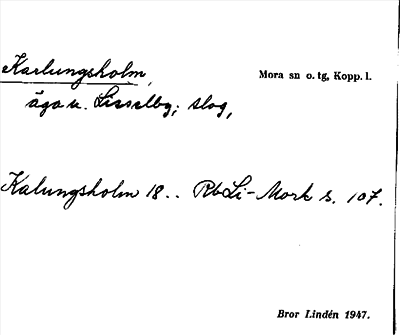 Karlungsholm, Mora sn o. tg, Kopp. l.
äga u. Lisselby; slog,
Kalungsholm 18.. RbLi-Mork s. 107.
Bror Lindén 1947.